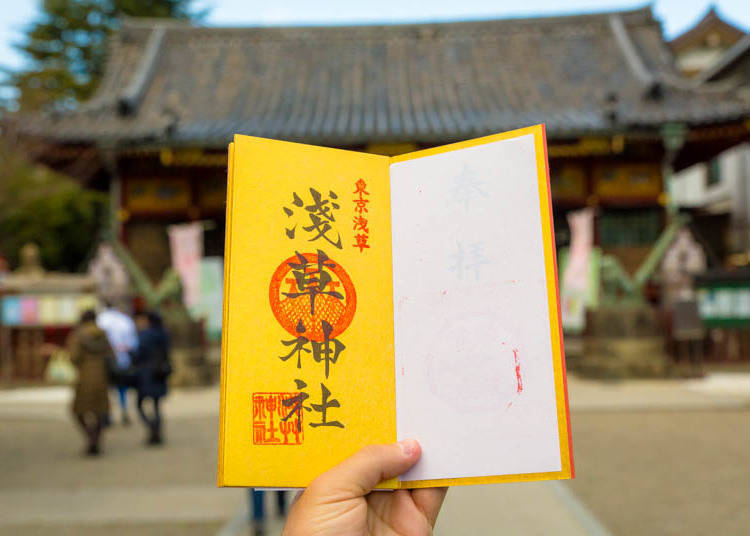 東京浅草
淺草神社
奉拝